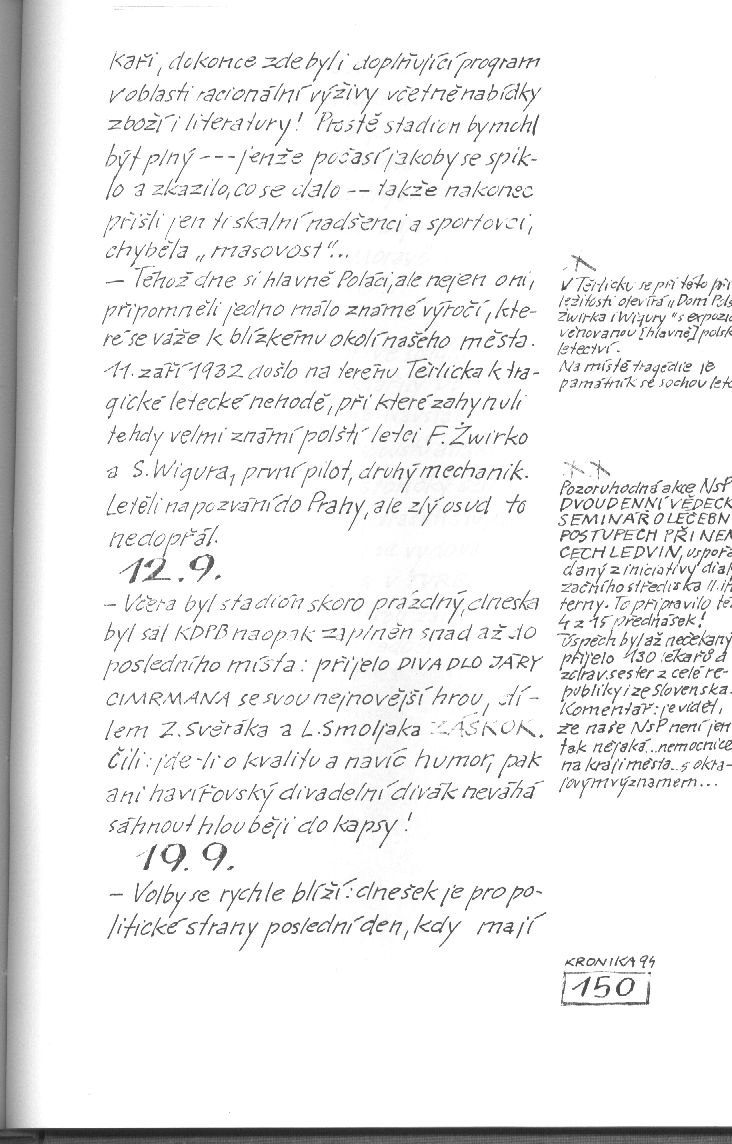 kaři, dokonce zde byli doplňující program
v oblasti racionální výživy včetně nabídky
zboží i literatury! Prostě stadion by mohl
být plný --- jenže počasí jakoby se spik-
lo a zkazilo, co se dalo -- takže nakonec
přišli jen ti skalní nadšenci a sportovci,
chyběla „masovost"...
– Téhož dne si hlavně Poláci, ale nejen oni,
připomněli jedno málo známé výročí, kte-
ré se váže k blízkému okolí našeho města.
11. září 1932 došlo na terenu Těrlicka k tra-
gické letecké nehodě, při které zahynuli
tehdy velmi známí polští letci F. Żwirko
a S. Wigura, první pilot, druhý mechanik.
Letěli na pozvání do Prahy, ale zlý osud to
nedopřál.
12.9.
– Včera byl stadión skoro prázdný, dneska
byl sál KDPB naopak zaplněn snad až do
posledního místa: přijelo DIVADLO JÁRY
CIMRMANA se svou nejnovější hrou, dí-
lem Z. Svěráka a L. Smoljaka ZÁSKOK.
Čili: jde-li o kvalitu a navíc humor, pak
ani havířovský divadelní divák neváhá
sáhnout hlouběji do kapsy!
19.9.
– Volby se rychle blíží: dnešek je pro po-
litické strany poslední den, kdy mají
V Těrlicku se při této pří
ležitosti otevírá „Dom Pols
Żwirka i Wigury" s expozic
věnovanou [hlavně] polsk
letectví.
Na místě tragédie je
památník se sochou letc
Pozoruhodná akce NsP
DVOUDENNÍ VĚDECK
SEMINÁŘ O LÉČEBN
POSTUPECH PŘI NEM
CECH LEDVIN, uspořá
daný z iniciativy dial
začního střediska II. in
terny. To připravilo té
4 z 15 přednášek!
Úspěch byl až nečekaný
přijelo 130 lékařů a
zdrav. sester z celé re-
publiky i ze Slovenska.
Komentář: je vidět,
že naše NsP není jen
tak nějaká... nemocnice
na kraji města... s okta-
ľovým významem...
KRONIKA 94
150